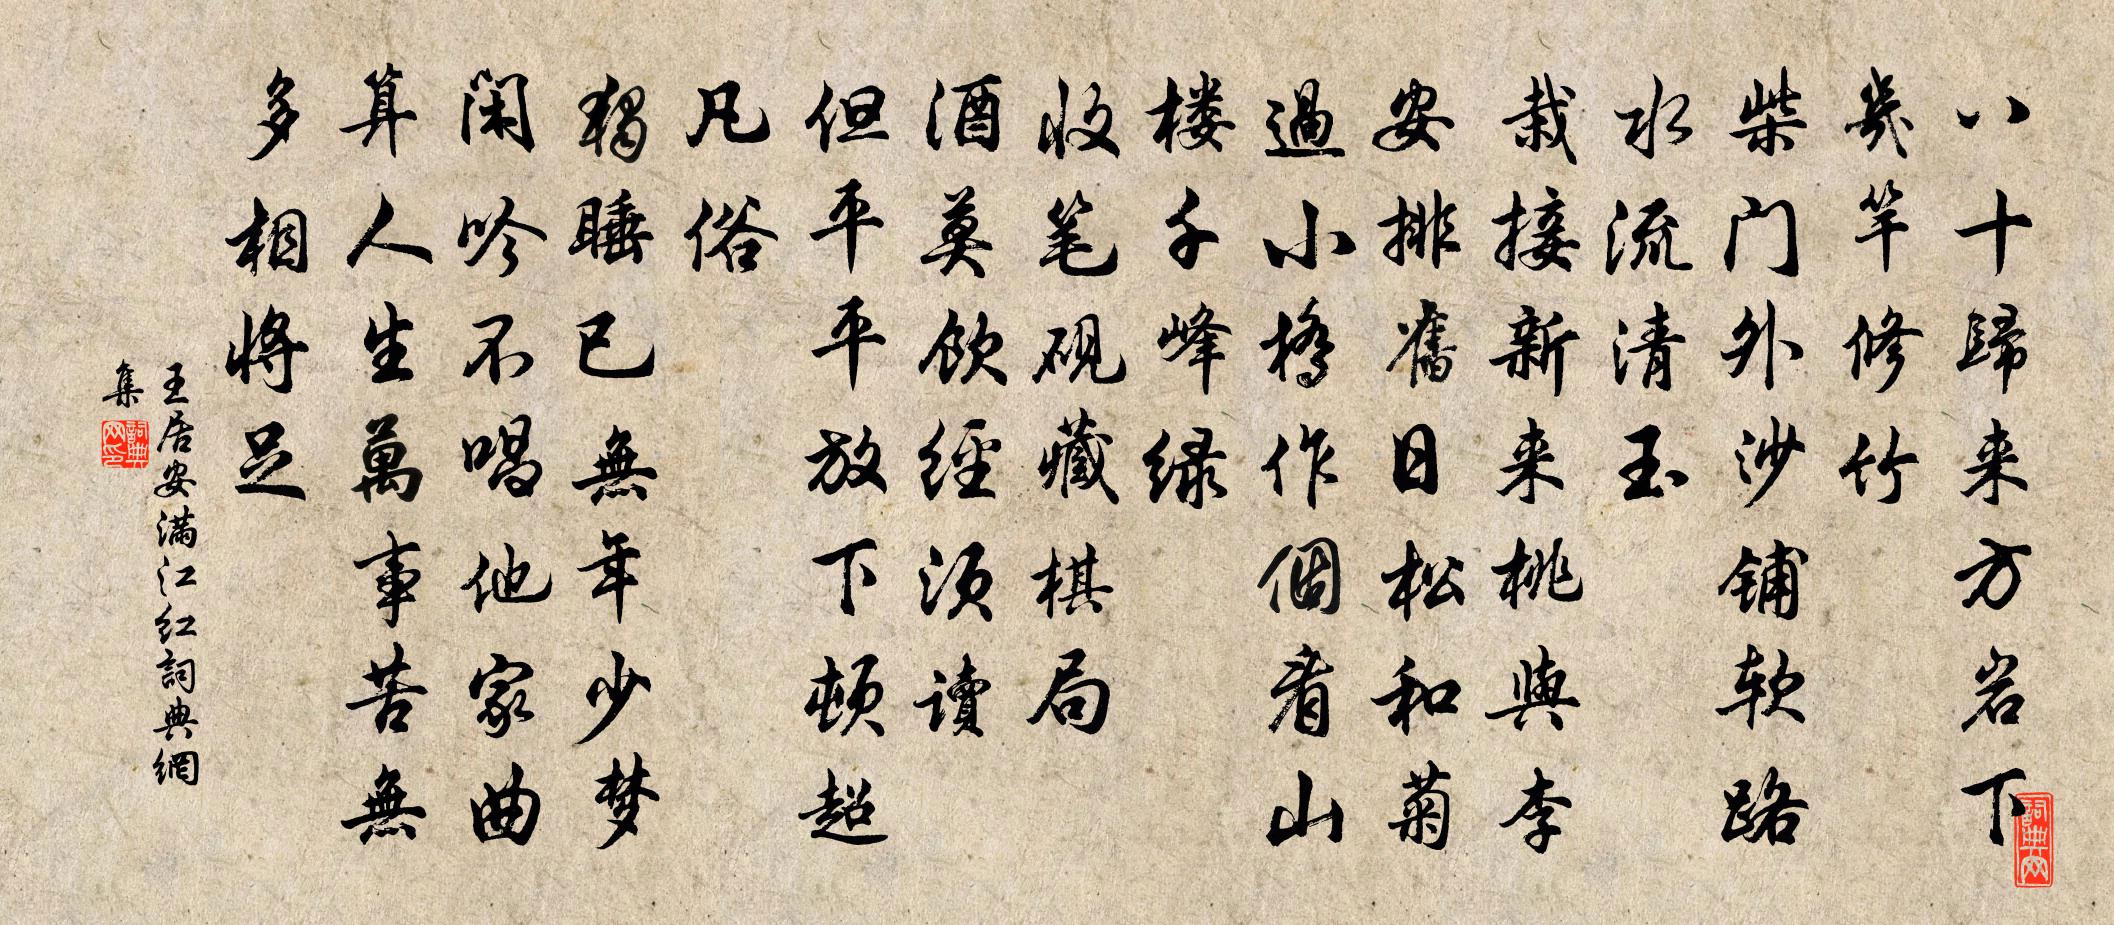 八十歸来方岩下
幾竿修竹
柴门外沙铺软路
水流清玉
栽接新来桃與李
安排舊日松和菊
過小橋作個看山
楼千峰绿
收笔砚藏棋局
酒莫飲經须讀
但平平放下顿超
凡俗
獨睡已無年少梦
闲吟不唱他家曲
算人生萬事苦無
多相將足
王居安满江红詞典網
集
詞典网印
詞典网